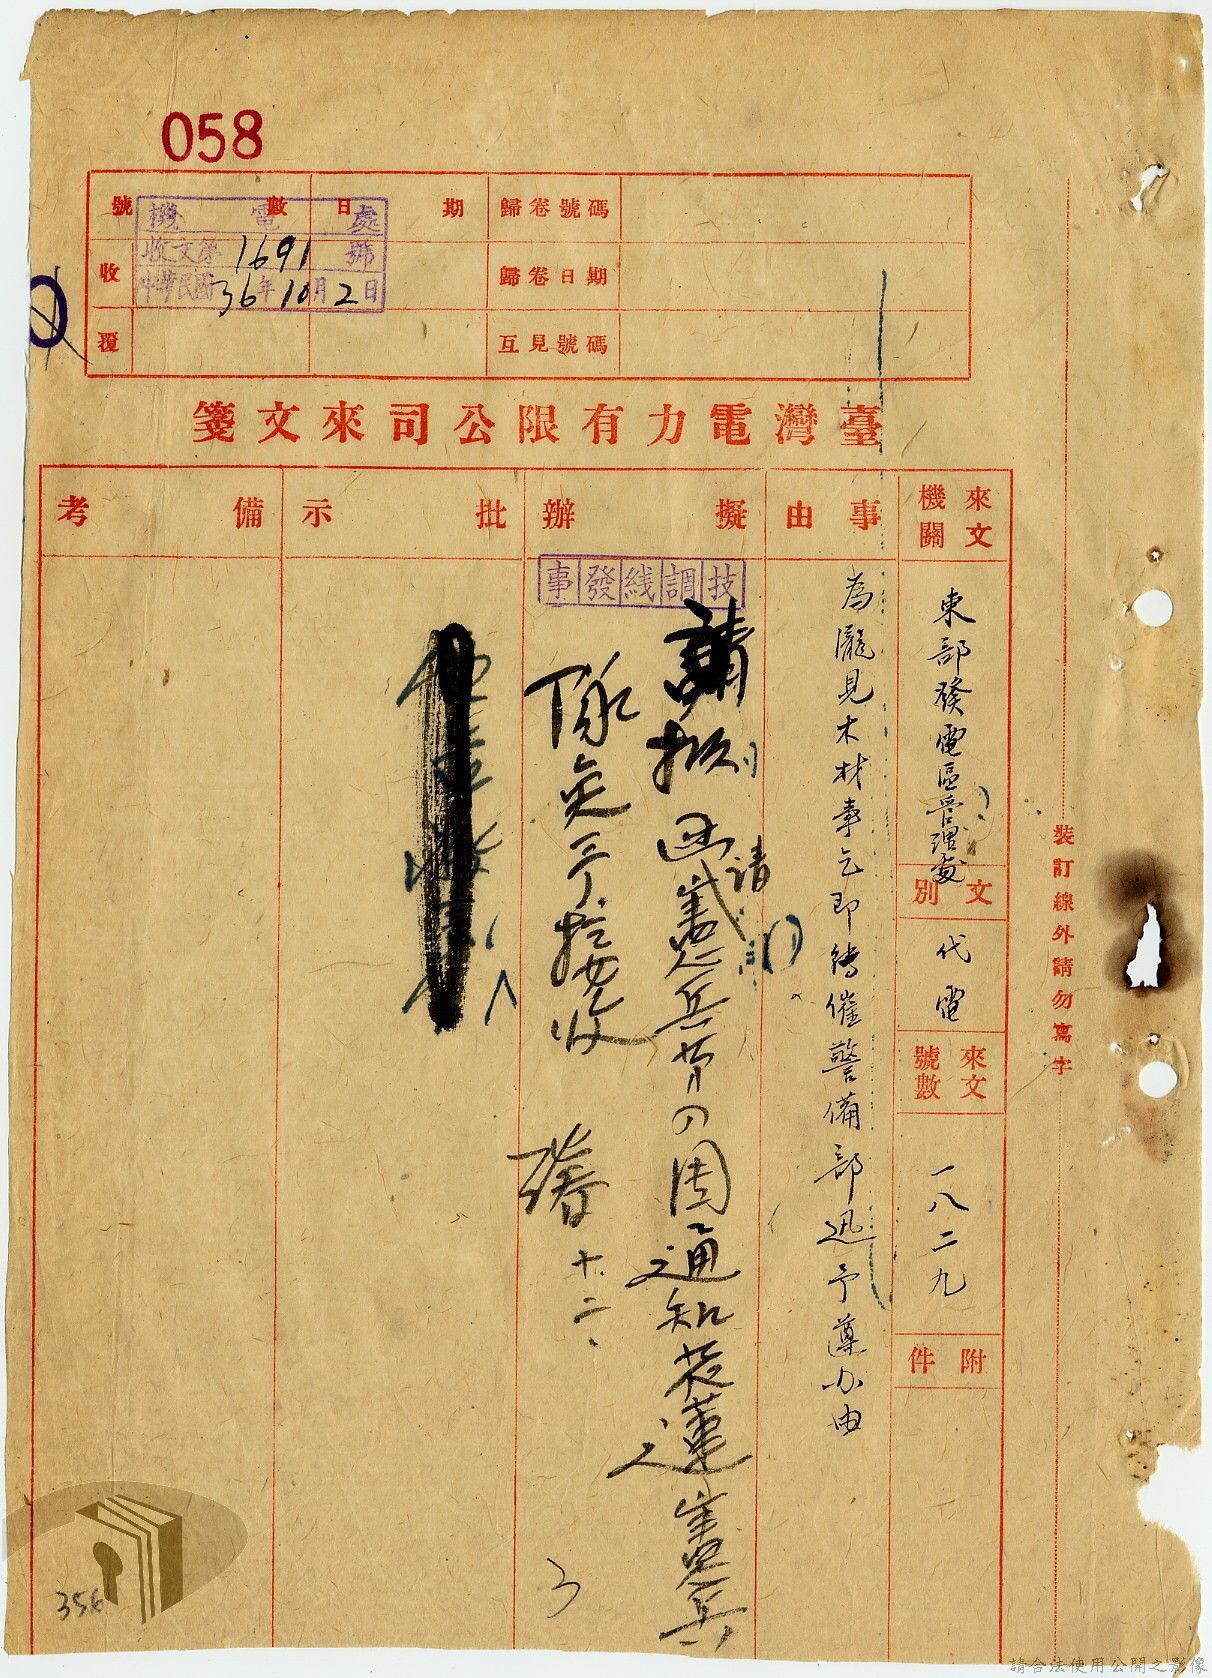 058
號數
日期
歸卷號碼
收
歸卷日期
覆
互見號碼
機電處
收文第1691號
中華民國36年10月2日
臺灣電力有限公司來文箋
來文機關
東部發電區管理處
文別
代電
來文號數
一八二九
附件
事由
為瀧見木材事乞即轉催警備部迅予遵办由
擬辦
技調綫發事
請擬函請憲兵第四团通知花蓮憲兵
隊免予接收
十.二.
批示
備考
裝訂線外請勿寫字
356
請合法使用公開之影像